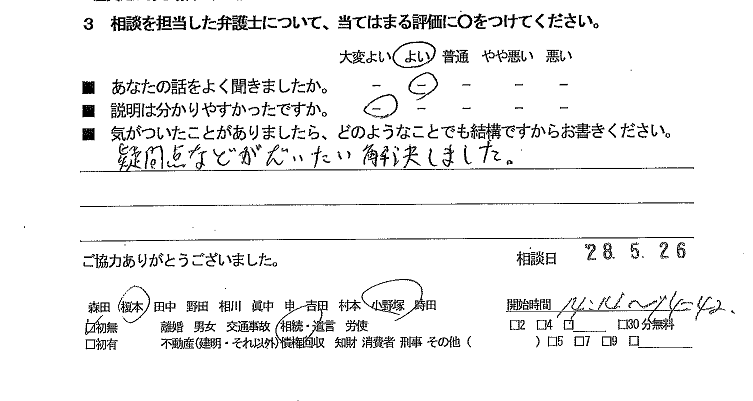 3 相談を担当した弁護士について、当てはまる評価に〇をつけてください。
大変よい よい 普通 やや悪い 悪い
■ あなたの話をよく聞きましたか。 － － － － －
■ 説明は分かりやすかったですか。 － － － － －
■ 気がついたことがありましたら、どのようなことでも結構ですからお書きください。
疑問点などがだいたい解決しました。
ご協力ありがとうございました。 相談日 '28. 5. 26
森田 榎本 田中 野田 相川 眞中 申 吉田 村本 小野塚 時田 開始時間
☑初無 離婚 男女 交通事故 相続・遺言 労使 □2 □4 □ □30分無料
□初有 不動産(建明・それ以外) 債権回収 知財 消費者 刑事 その他 ( ) □5 □7 □9 □